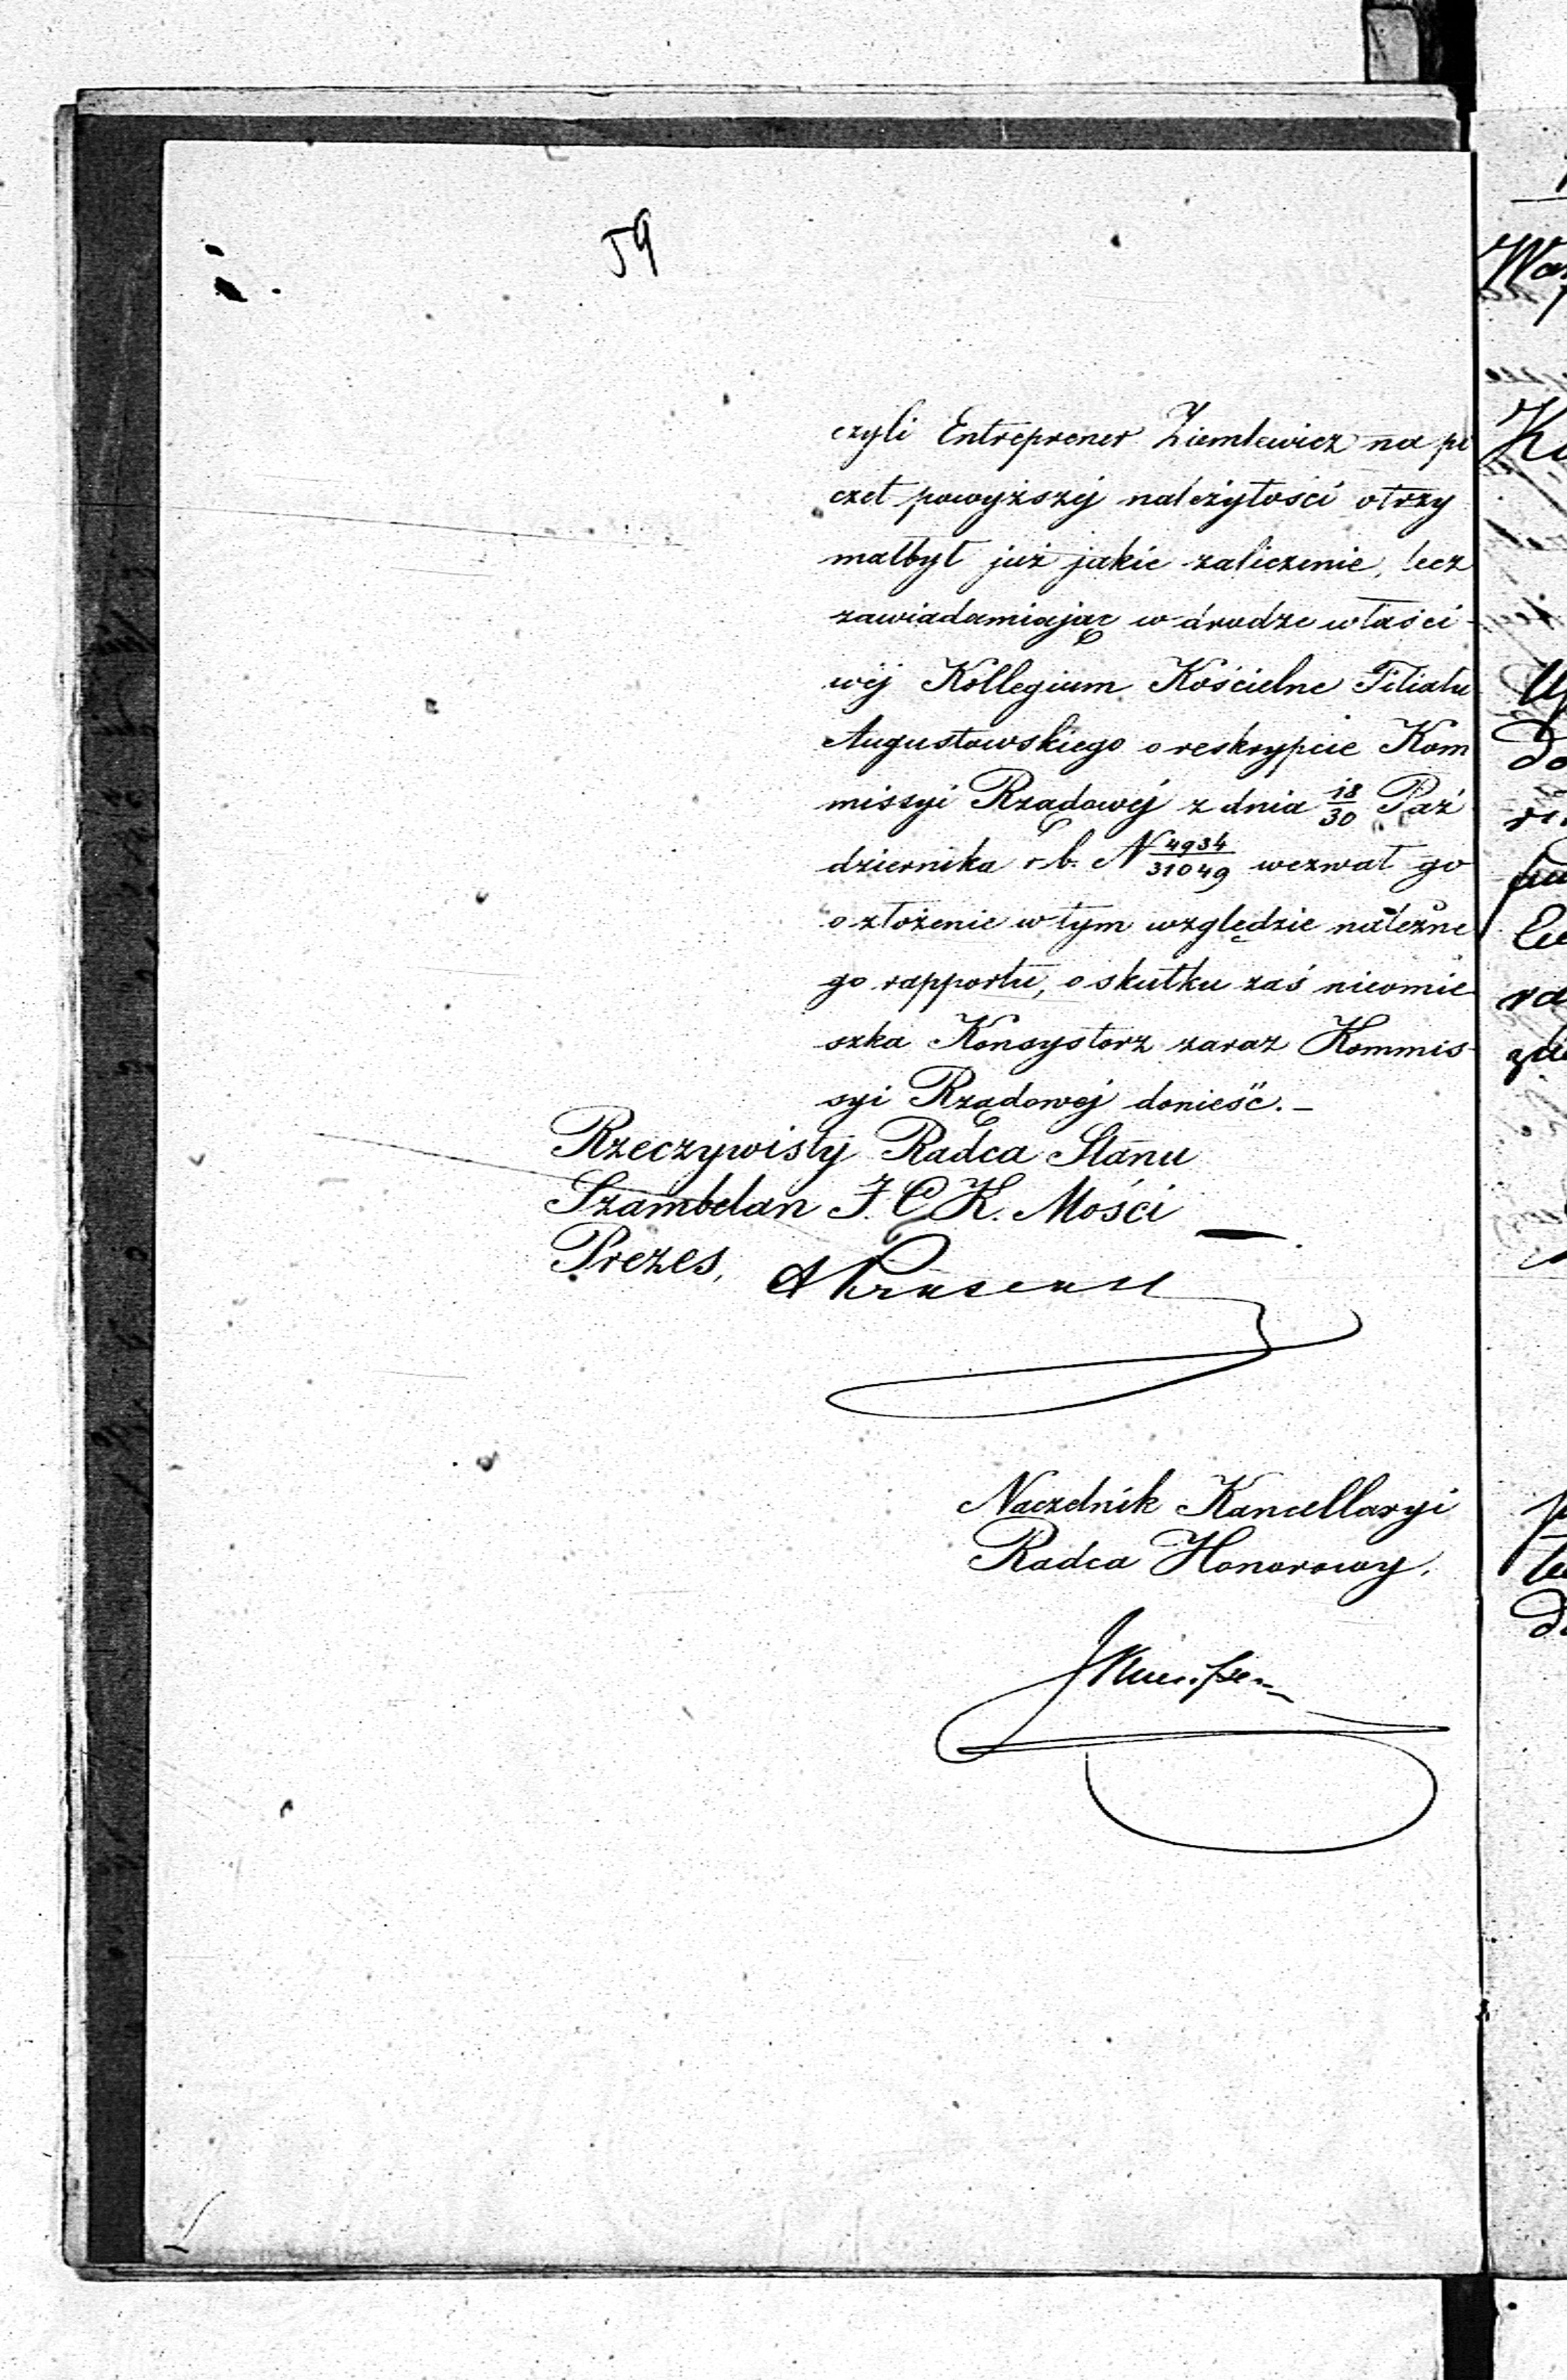 59
czyli Entreprener Ziemlewicz na po
czet powyższéj należytości otrzy
małbył już jakie zaliczenie, lecz
zawiadamiając w drodze właści-
wéj Kollegium Kościelne Filiału
Augustowskiego o reskrypcie Kom
missyi Rządowéj z dnia 18/30 Paź
dziernika r. b. N 4934/31049 wezwał go
o złożenie w tym względzie należne
go rapportu, o skutku zaś nieomie
szka Konsystorz zaraz Kommis-
syi Rządowéj donieść. –
Rzeczywisty Radca Stanu
Szambelan J. C. K. Mości
Prezes,
Naczelnik Kancellaryi
Radca Honorowy,